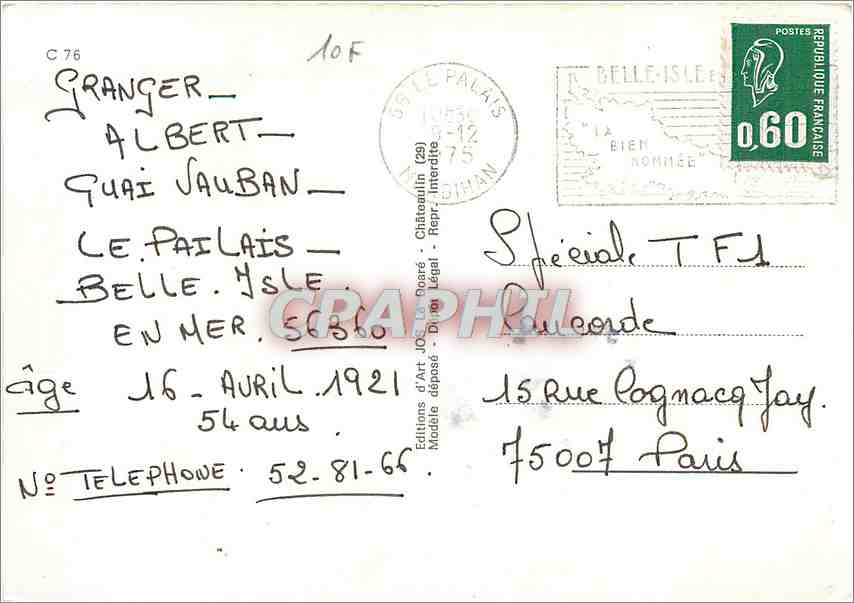 C 76
10F
GRANGER_
ALBERT_
QUAI VAUBAN_
LE.PAILAIS_
BELLE.ISLE.
EN MER. 56360
âge 16_AVRIL.1921
54 ans.
No TELEPHONE. 52-81-66.
56 LE PALAIS
9-12
75
BELLE-ISLE
"LA
BIEN
NOMMÉE"
POSTES
REPUBLIQUE FRANÇAISE
0,60
Editions d'Art JOS Le Doaré - Châteaulin (29)
Modèle déposé - Dépôt Légal - Repr. Interdite
CRAPHIL
Spéciale TF1
Concorde
15 Rue Cognacq Jay.
75007 Paris